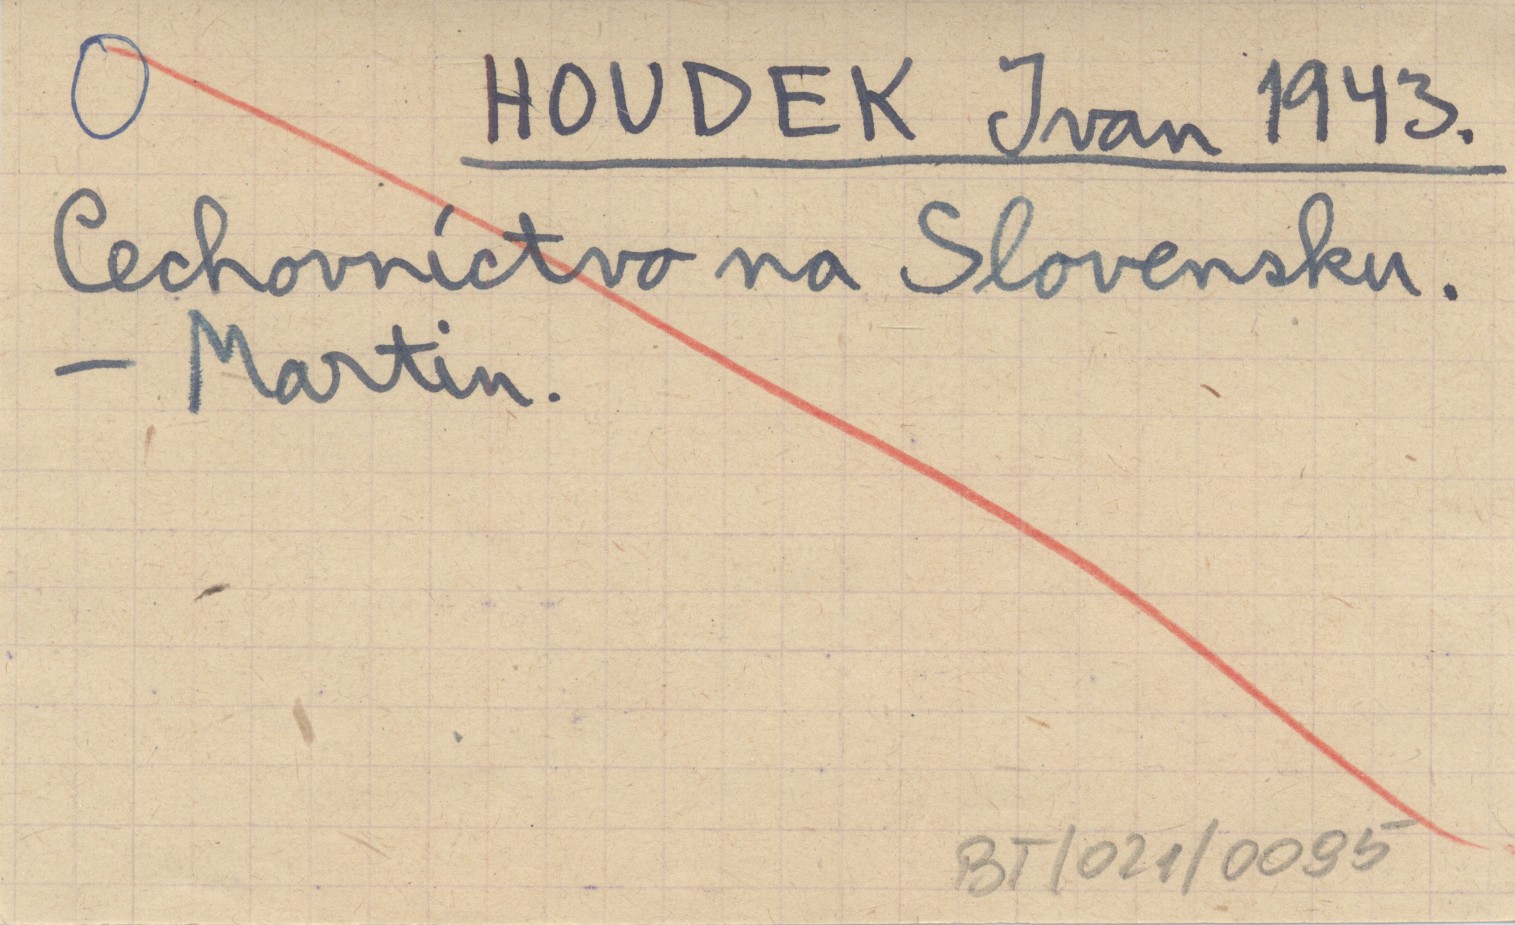 O HOUDEK Ivan 1943.
Cechovníctvo na Slovensku.
- Martin.
BT/021/0095